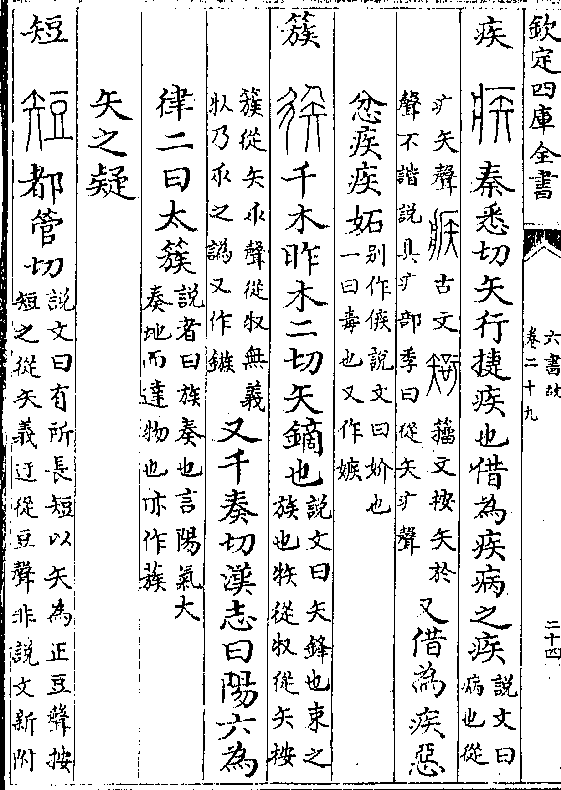 欽定四庫全書
六書故
卷二十九
二十四
疾
秦悉切矢行捷疾也借為疾病之疾說文曰
病也從
疒矢聲古文籒文按矢於
聲不諧說具疒部季曰從矢疒聲
又借為疾惡
忿疾疾妬别作㑵說文曰妎也
一曰毒也又作嫉
簇
千木昨木二切矢鏑也說文曰矢鋒也束之
族也㸜從㫃從矢按
簇從矢㐺聲從㫃無義
㫃乃㐺之譌又作鏃
又千奏切漢志曰陽六為
律二曰太簇說者曰族奏也言陽氣大
奏地而達物也亦作蔟
矢之疑
短
都管切說文曰有所長短以矢為正豆聲按
短之從矢義迂從豆聲非說文新附